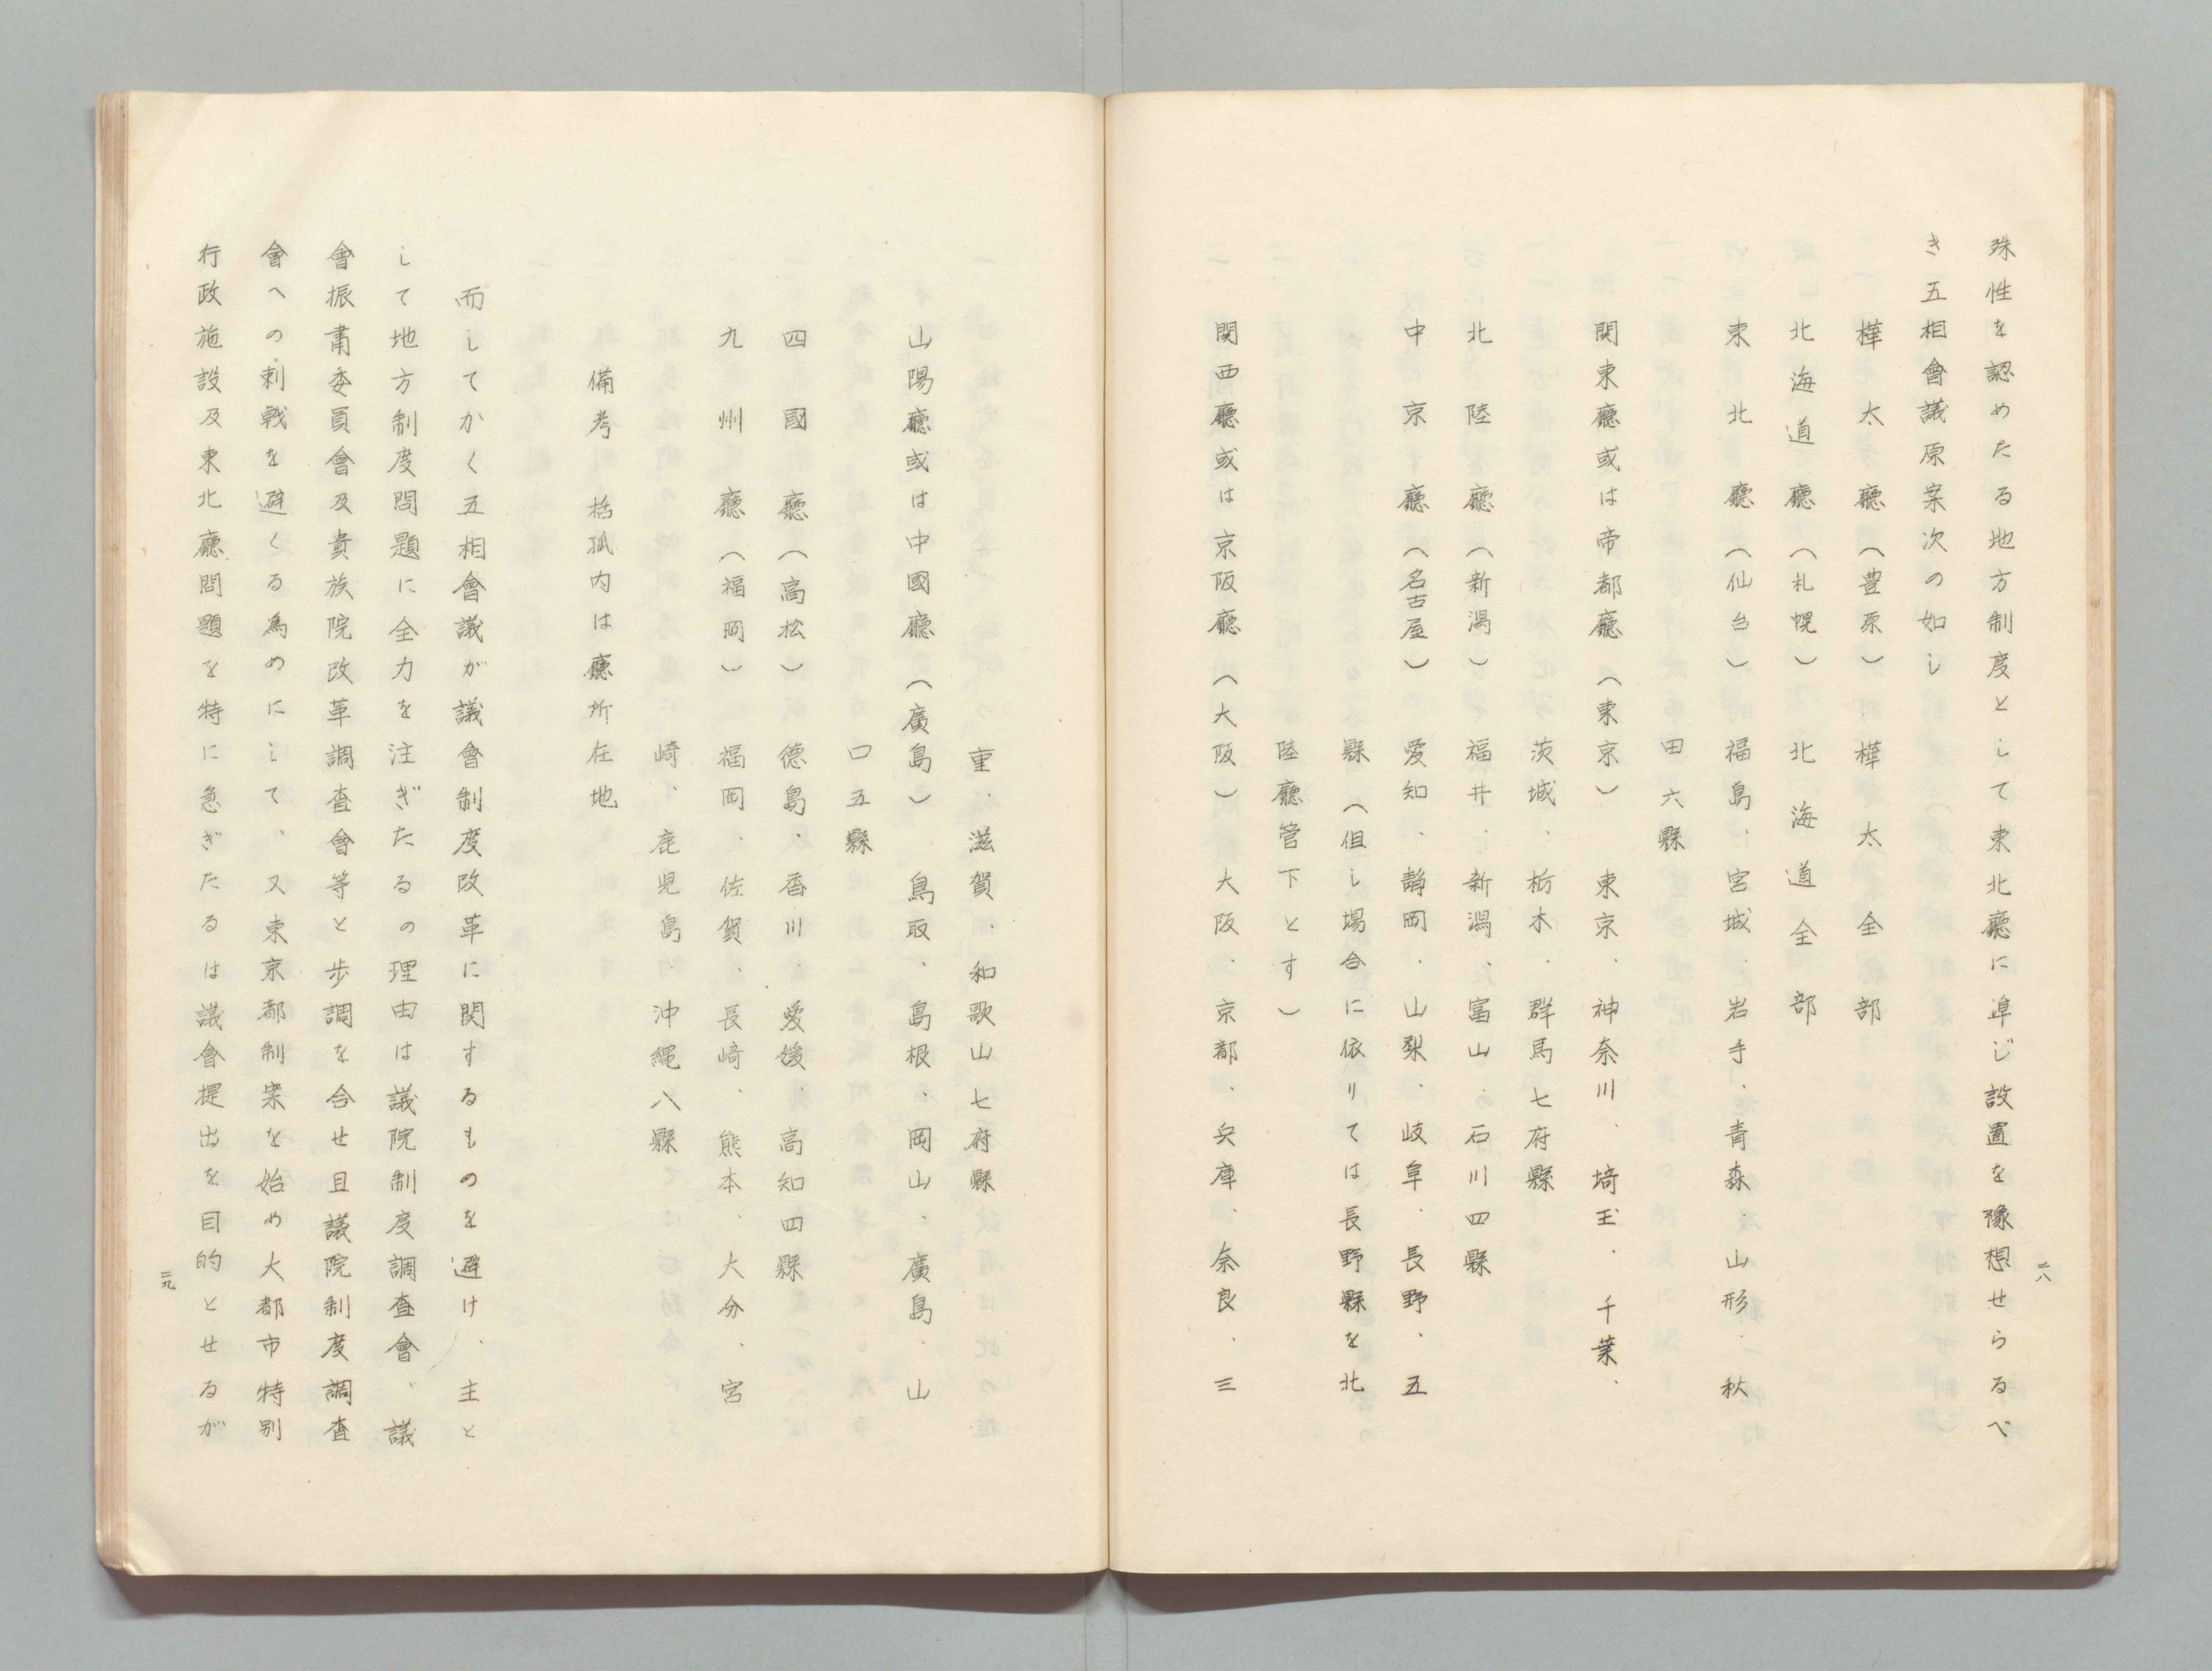 殊性を認めたる地方制度として東北廳に準じ設置を豫想せらるべ
き五相會議原案次の如し
樺太廳（豊原）　樺太全部
北海道廳（札幌）　北海道全部
東北廳（仙台）　福島、宮城、岩手、青森、山形、秋
田六縣
関東廳或は帝都廳（東京）　東京、神奈川、埼玉、千葉、
茨城、栃木、群馬七府縣
北陸廳（新潟）　福井、新潟、富山、石川四縣
中京廳（名古屋）　愛知、静岡、山梨、岐阜、長野、五
縣（但し場合に依りては長野縣を北
陸廳管下とす）
関西廳或は京阪廳（大阪）　大阪、京都、兵庫、奈良、三
二八
重、滋賀、和歌山七府縣
山陽廳或は中國廳（廣島）　鳥取、島根、岡山、廣島、山
口五縣
四國廳（高松）　徳島、香川、愛媛、高知四縣
九州廳（福岡）　福岡、佐賀、長崎、熊本、大分、宮
崎、鹿児島、沖縄八縣
備考　括孤内は廳所在地
而してかく五相會議が議會制度改革に関するものを避け、主と
して地方制度問題に全力を注ぎたるの理由は議院制度調査會、議
會振肅委員會及貴族院改革調査會等と歩調を合せ且議院制度調査
會への刺戟を避くる為めにして、又東京都制案を始め大都市特別
行政施設及東北廳問題を特に急ぎたるは議會提出を目的とせるが
二九